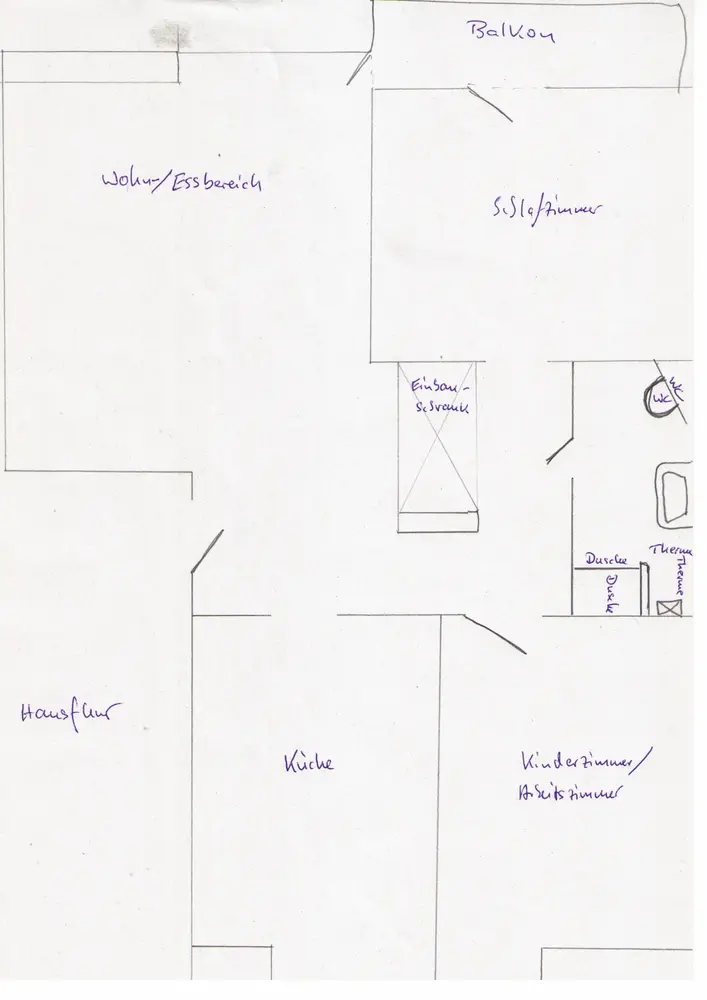 Balkon
Wohn-/Essbereich
Schlafzimmer
Einbau-
schrank
WC
WC
Dusche
Dusche
Therme
Therme
Hausflur
Küche
Kinderzimmer/
Arbeitszimmer